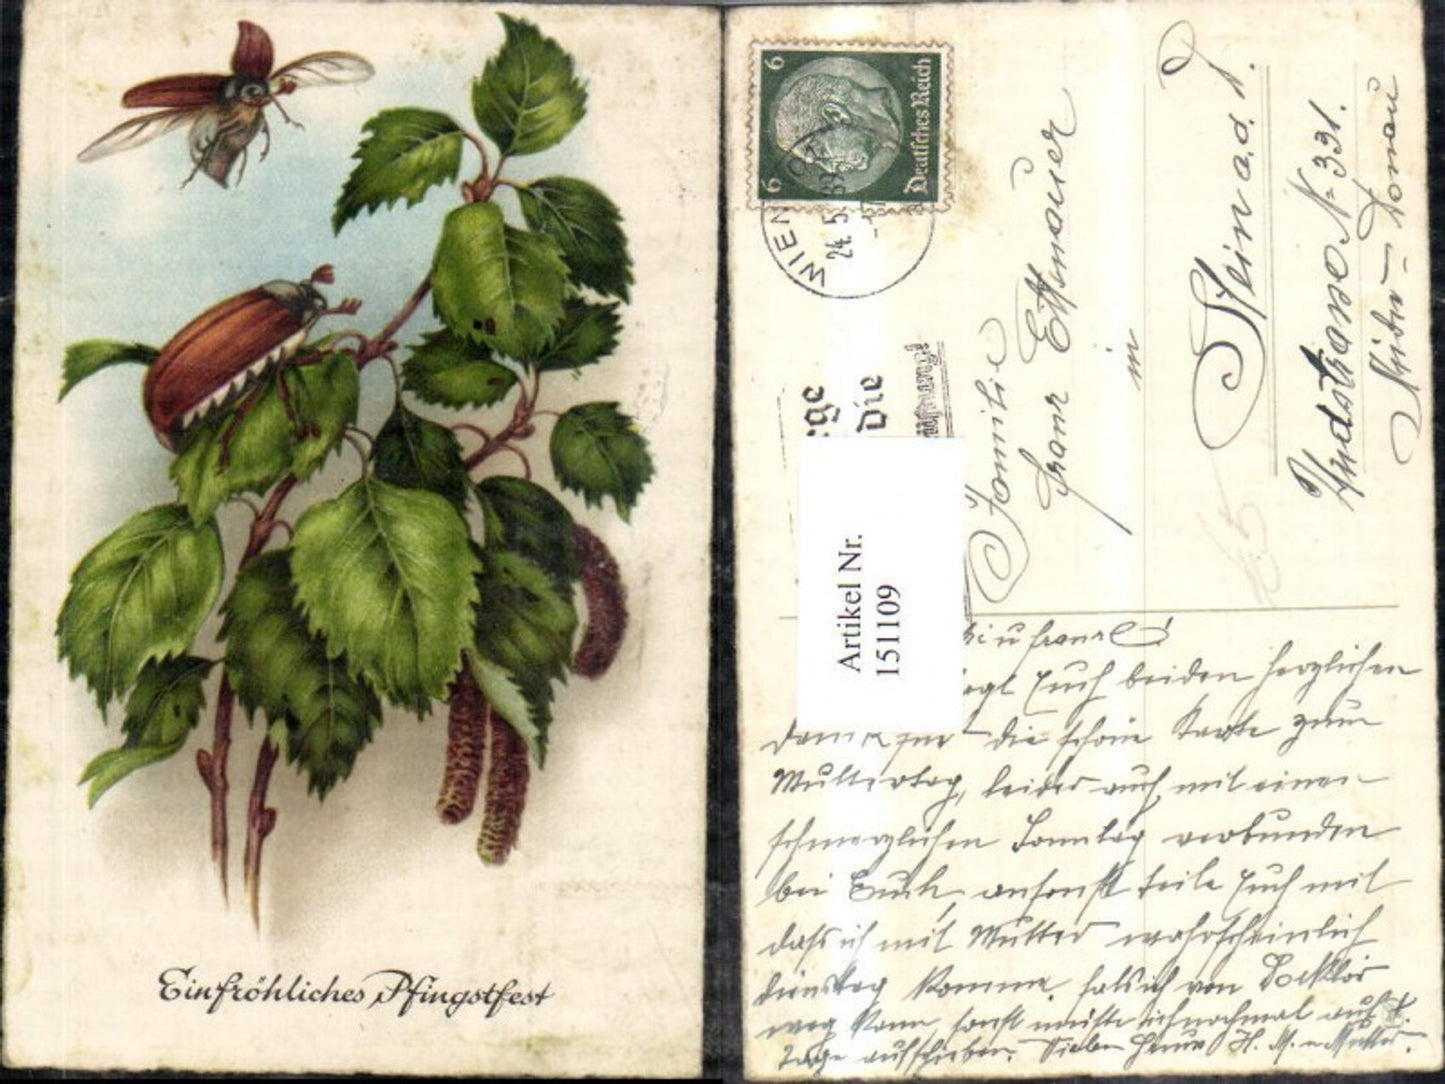 Ein fröhliches Pfingstfest
6 6
Deutsches Reich
WIEN
24. 5
rge
Die
Artikel Nr.
151109
Familie
Franz Ettmauer
in
Stein a. d. D.
Industriasse N= 331.
Nieder-Donau
Euch beiden herzlichen
Dank für die schöne Karte zum
Muttertag, leider auch mit einem
schmerzlichen Sonntag verbunden
bei Euch, ansonst teile Euch mit
dass ich mit Mutter wahrscheinlich
Dienstag komme, falls ich von Doktor
weg kann, sonst müsste ich nochmal auf
Tage aufschieben.